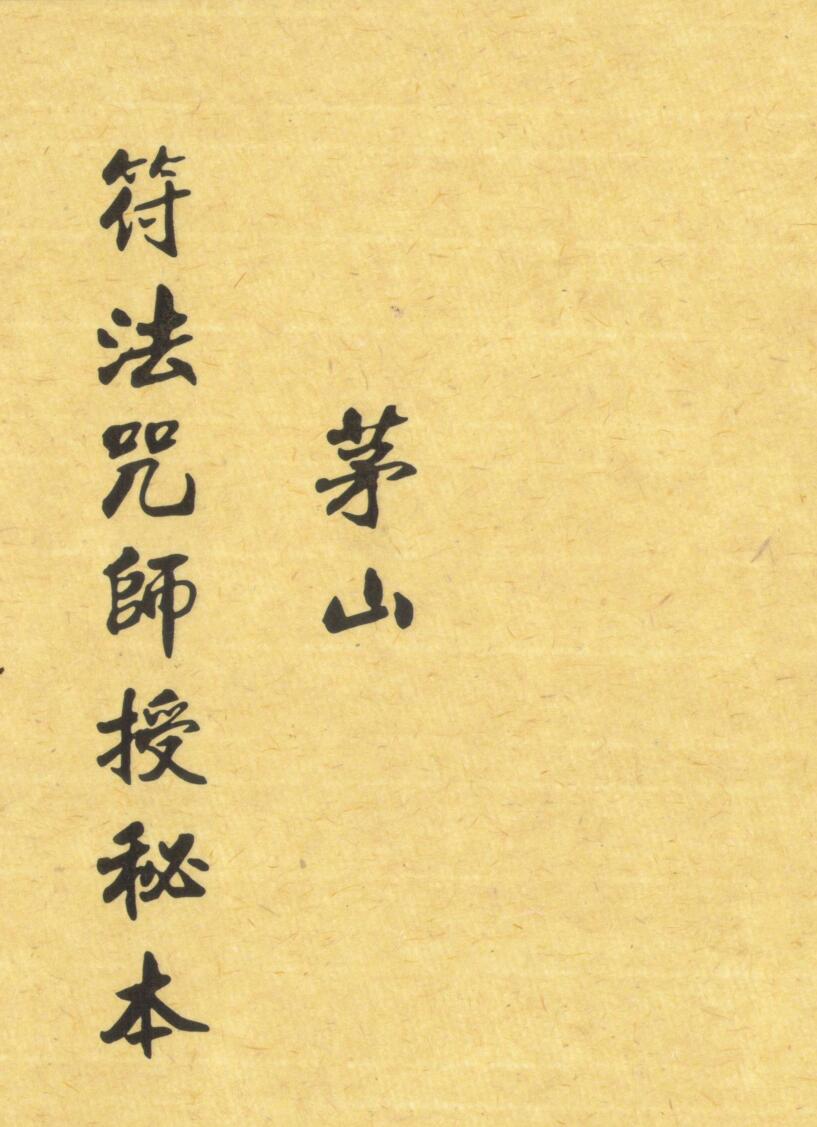 茅山
符法咒師授秘本